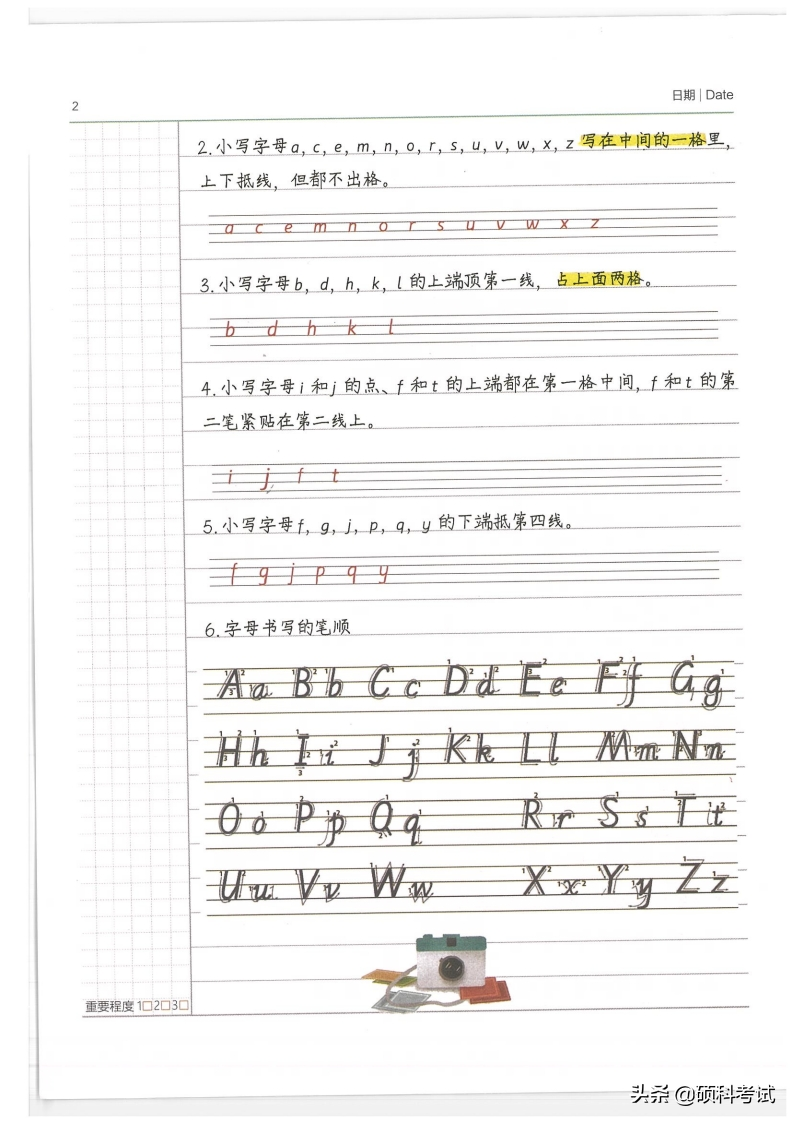 2
日期 | Date
2.小写字母a, c, e, m, n, o, r, s, u, v, w, x, z 写在中间的一格里，
上下抵线，但都不出格。
a c e m n o r s u v w x z
3.小写字母b, d, h, k, l 的上端顶第一线，占上面两格。
b d h k l
4.小写字母i 和j 的点、f 和t 的上端都在第一格中间，f 和t 的第
二笔紧贴在第二线上。
i j f t
5.小写字母f, g, j, p, q, y 的下端抵第四线。
f g j p q y
6.字母书写的笔顺
Aa Bb Cc Dd Ee Ff Gg
Hh Ii Jj Kk Ll Mm Nn
Oo Pp Qq Rr Ss Tt
Uu Vv Ww Xx Yy Zz
重要程度 1□2□3□
头条 @硕科考试